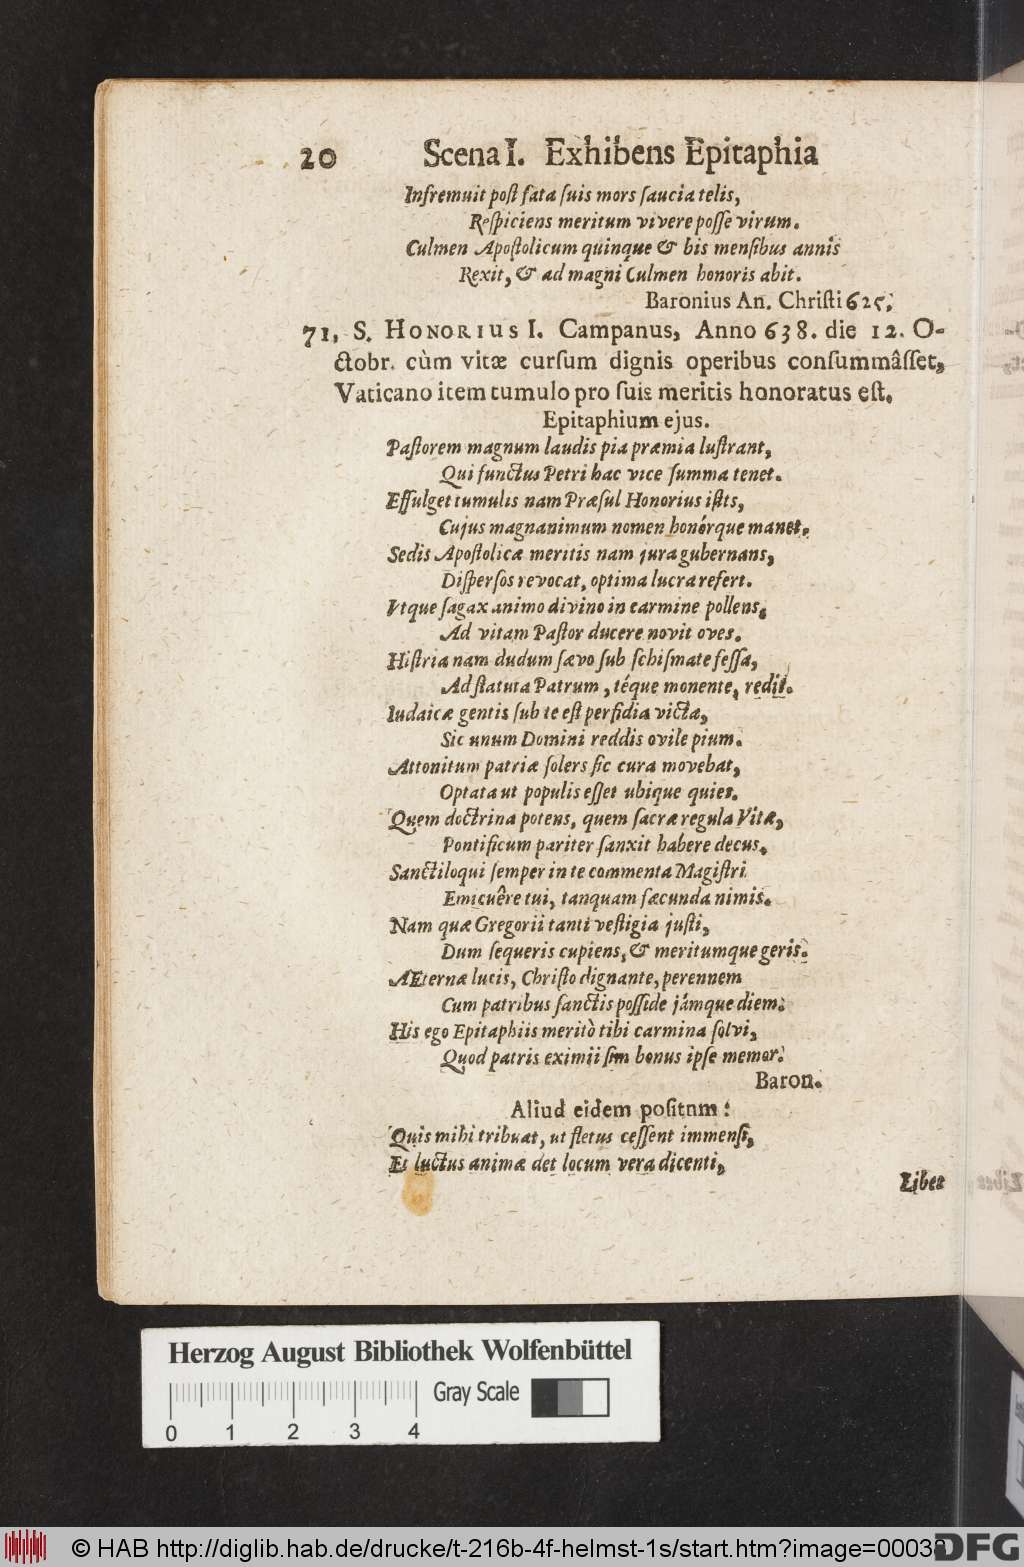 20 Scena I. Exhibens Epitaphia
Infremuit post fata suis mors saucia telis,
Respiciens meritum vivere posse virum.
Culmen Apostolicum quinque & bis mensibus annis
Rexit, & ad magni Culmen honoris abit.
Baronius An. Christi 625.
71. S. HONORIUS I. Campanus, Anno 638. die 12. O-
ctobr. cùm vitæ cursum dignis operibus consummâsset,
Vaticano item tumulo pro suis meritis honoratus est.
Epitaphium ejus.
Pastorem magnum laudis pia præmia lustrant,
Qui functus Petri hac vice summa tenet.
Effulget tumulis nam Præsul Honorius istis,
Cujus magnanimum nomen honórque manet.
Sedis Apostolicæ meritis nam jura gubernans,
Dispersos revocat, optima lucra refert.
Vtque sagax animo divino in carmine pollens,
Ad vitam Pastor ducere novit oves.
Histria nam dudum sævo sub schismate fessa,
Ad statuta Patrum, téque monente, redit.
Iudaicæ gentis sub te est perfidia victa,
Sic unum Domini reddis ovile pium.
Attonitum patriæ solers sic cura movebat,
Optata ut populis esset ubique quies.
Quem doctrina potens, quem sacræ regula Vitæ,
Pontificum pariter sanxit habere decus.
Sanctiloqui semper in te commenta Magistri
Emicuêre tui, tanquam fæcunda nimis.
Nam quæ Gregorii tanti vestigia justi,
Dum sequeris cupiens, & meritumque geris.
AEternæ lucis, Christo dignante, perennem
Cum patribus sanctis posside jámque diem.
His ego Epitaphiis meritò tibi carmina solvi,
Quod patris eximii sim bonus ipse memor.
Baron.
Aliud eidem positnm:
Quis mihi tribuat, ut fletus cessent immensi,
Et luctus animæ det locum vera dicenti,
Licet
Herzog August Bibliothek Wolfenbüttel
Gray Scale
0 1 2 3 4
© HAB http://diglib.hab.de/drucke/t-216b-4f-helmst-1s/start.htm?image=00038
DFG